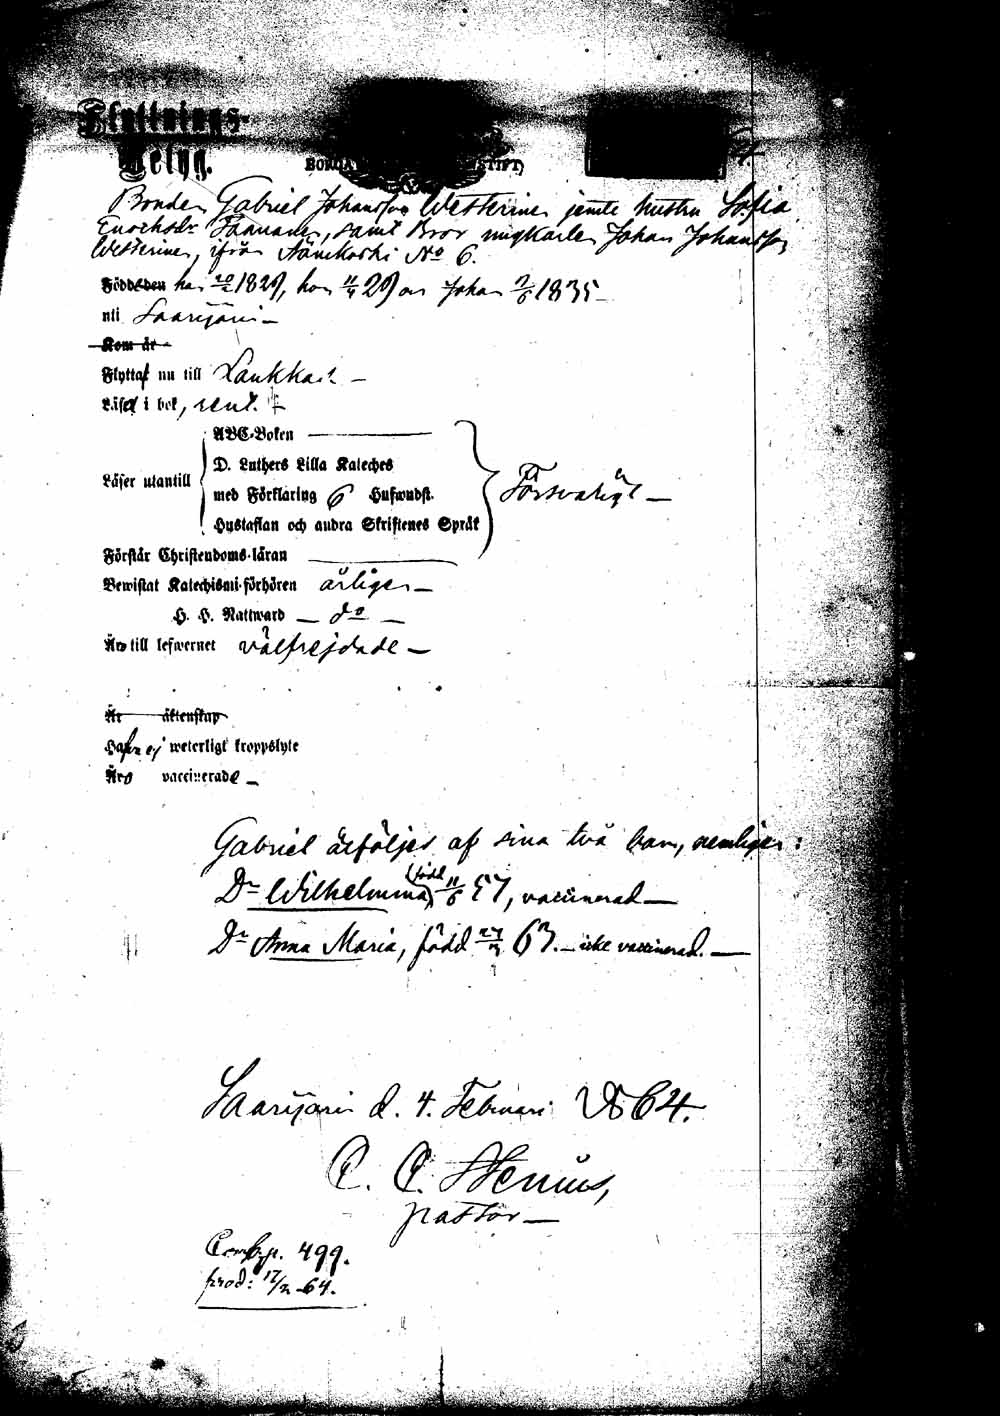 Flyttnings-
Betyg.
Bonden Gabriel Johansson Westerinen jemte hustru Sofia
Enochsdr samt Bror ungkarlen Johan Johansson
Westerinen, ifrån Äänekoski No 6.
Född han 20/2 1829, hon 11/4 29 Johan 7/6 1835
uti Saarijärvi –
Kom år
Flytta nu till Laukkas –
Läsa i bok, rent. –
ABC-Boken
D. Luthers Lilla Kateches
Läser utantill
med Förklaring 6 Hufwudst.
Försvarligt –
Hustaflan och andra Skriftenes Språk
Förstår Christendoms-läran
Bewistat Katechismi-förhören årligen –
H. H. Nattward – do –
Äro till lefwernet välfrejdade –
Är äktenskap
Hafva ej weterligt kroppslyte
Äro vaccinerade –
Gabriel åtföljes af sina två barn, nemligen:
Dr Wilhelmina, (född 11/6 57, vaccinerad –
Dr Anna Maria, född 63. – icke vaccinerad. –
Saarijärvi d. 4. Februari 1864.
pastor –
499.
prod: 17/2 -64.